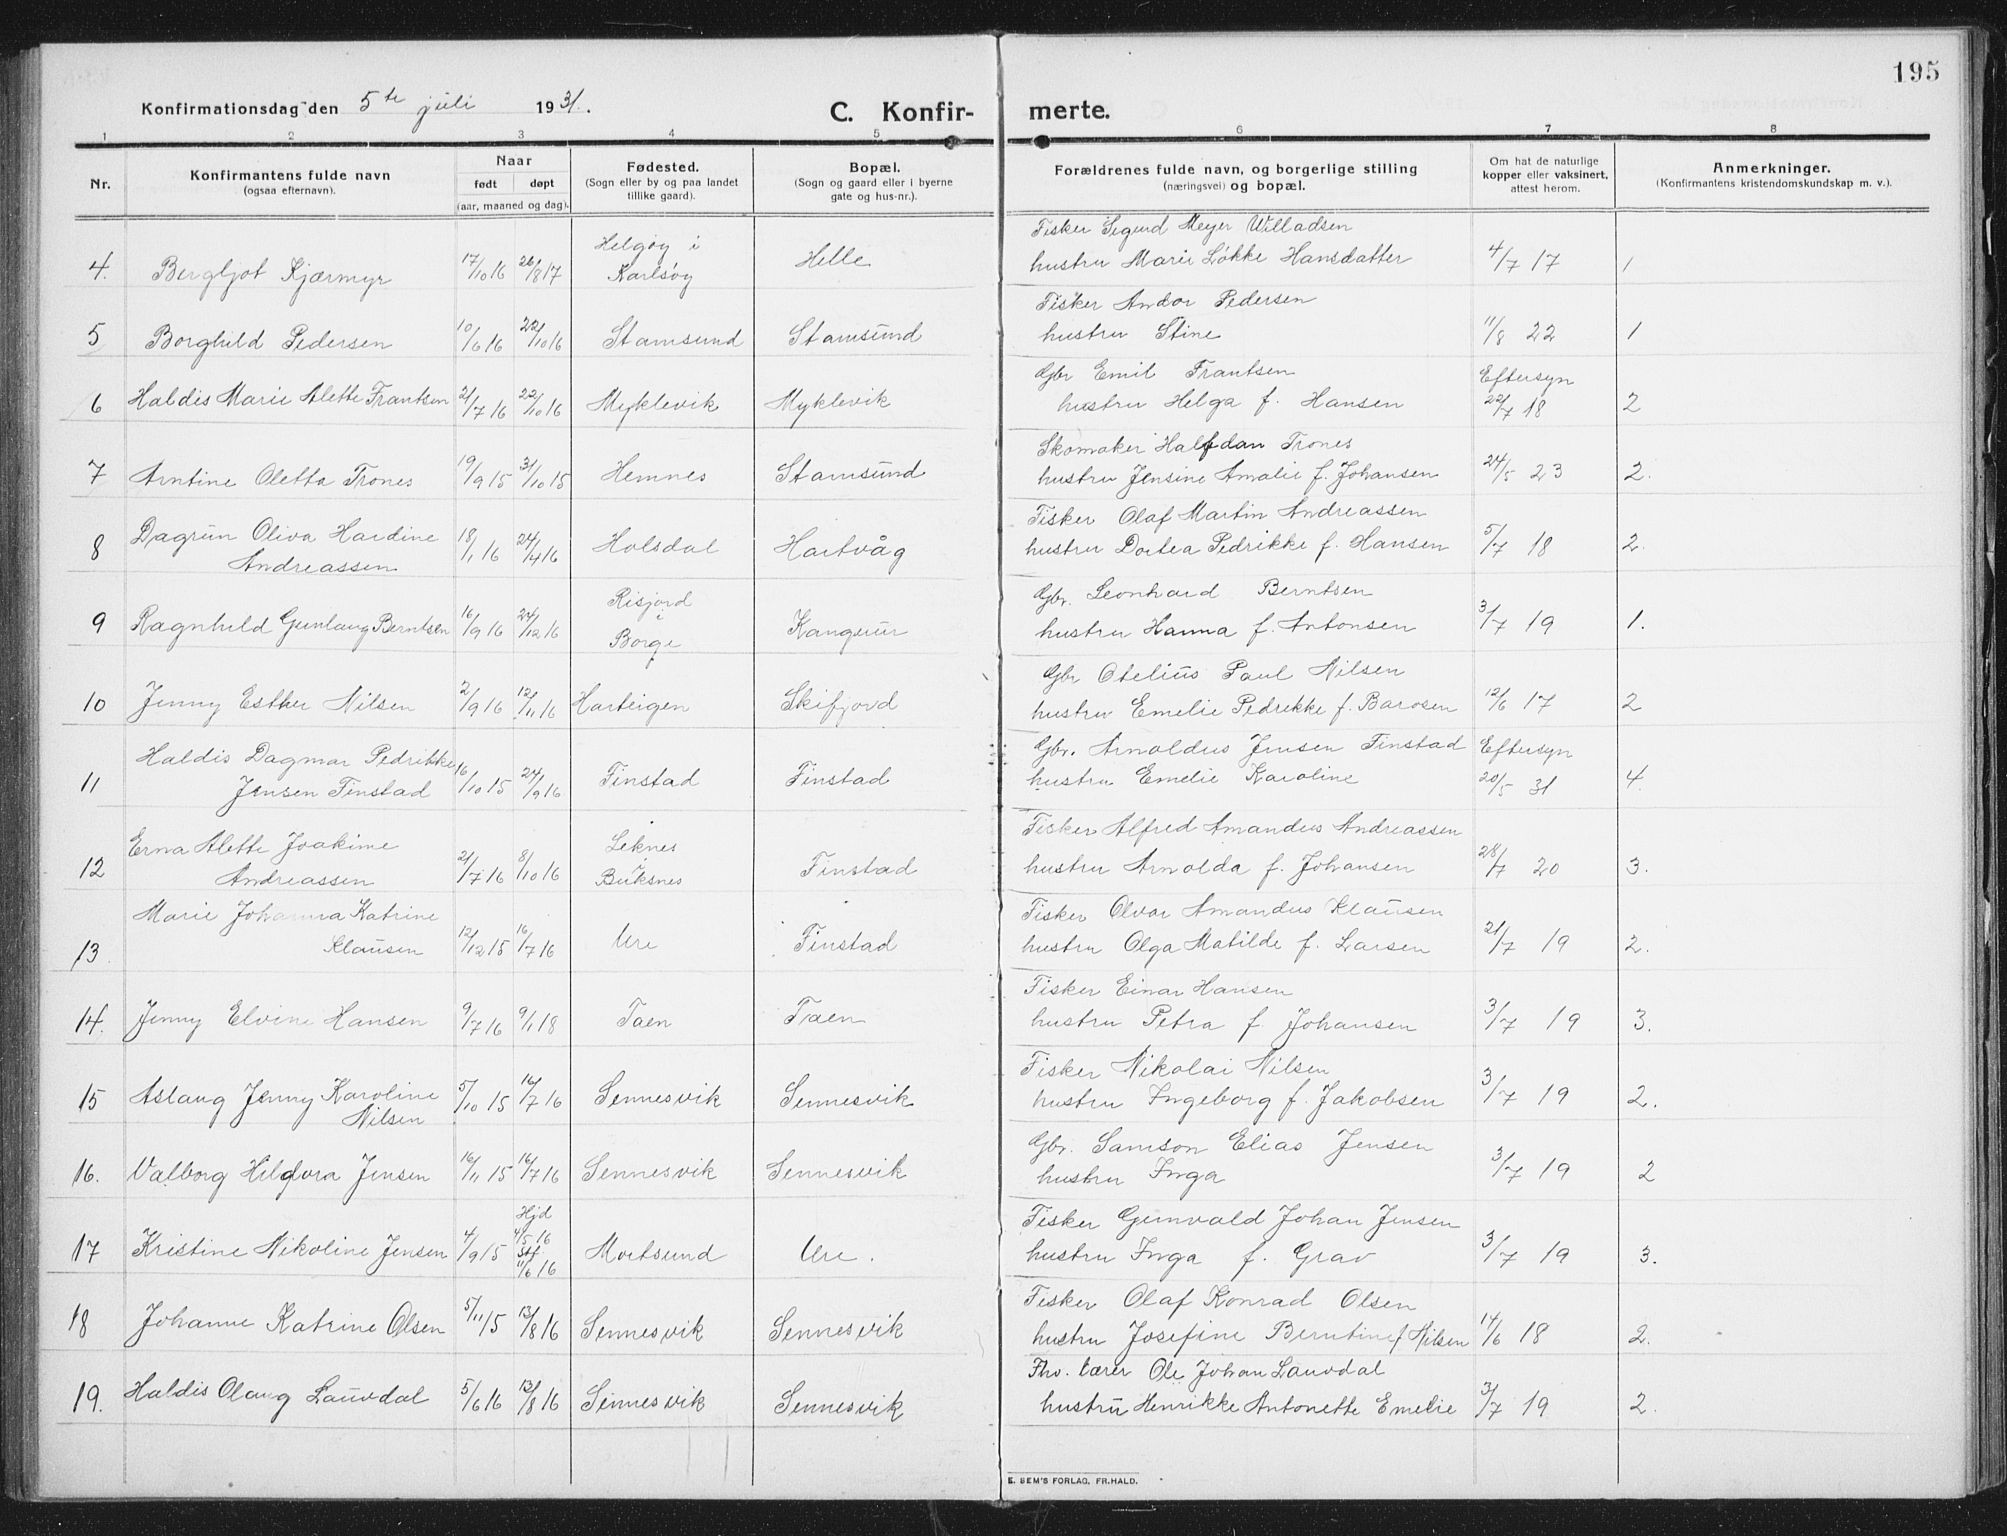 195
Konfirmationsdag den 5te juli 1931.
C. Konfirmerte.
1 2 3 4 5 6 7 8
Nr.
Konfirmantens fulde navn
(ogsaa efternavn).
Naar
født døpt
(aar, maaned og dag).
Fødested.
(Sogn eller by og paa landet
tillike gaard).
Bopæl.
(Sogn og gaard eller i byerne
gate og hus-nr.).
Forældrenes fulde navn, og borgerlige stilling
(næringsvei) og bopæl.
Om hat de naturlige
kopper eller vaksinert,
attest herom.
Anmerkninger.
(Konfirmantens kristendomskundskap m. v.).
4. Bergljot Kjærmyr 17/10 16 26/8 17 Helgøy i Karlsøy Helle
Fisker Sigurd Meyer Willadsen
hustru Marie Løkke Hansdatter 4/7 17 1
5 Borghild Pedersen 10/6 16 22/10 16 Stamsund Stamsund
Fisker Andor Pedersen
hustru Stine 11/8 22 1
6 Haldis Marie Alette Frantsen 21/7 16 22/10 16 Myklevik Myklevik
Gbr Emil Frantsen Eftersyn
hustru Helga f. Hansen 22/7 18 2
7 Arntine Oletta Trones 19/9 15 31/10 15 Hemnes Stamsund
Skomaker Halfdan Trones
hustru Jensine Amalie f. Johansen 24/5 23 2.
8 Dagrun Oliva Hardine
Andreassen 18/1 16 24/4 16 Holsdal Hartvåg
Fisker Olaf Martin Andreassen
hustru Dortea Pedrikke f. Hansen 5/7 18 2.
9 Ragnhild Gunlaug Berntsen 16/9 16 24/12 16 Risjord i Borge Kangerur
Gbr. Leonhard Berntsen
hustru Hanna f. Antonsen 3/7 19 1.
10 Jenny Esther Nilsen 2/9 16 12/11 16 Harteigen Skifjord
Gbr Otelius Paul Nilsen
hustru Emelie Pedrikke f. Barosen 12/6 17 2
11 Haldis Dagmar Pedrikke
Jensen Finstad 16/10 15 24/9 16 Finstad Finstad
Gbr. Arnoldus Jensen Finstad Eftersyn
hustru Emelie Karoline 20/5 31 4.
12 Erna Alette Joakime
Andreassen 21/7 16 8/10 16 Leknes i Buksnes Finstad
Fisker Alfred Amandus Andreassen
hustru Arnolda f. Johansen 28/7 20 3.
13 Marie Johanna Katrine
Klausen 12/12 15 16/7 16 Ure Finstad
Fisker Olvar Amandus Klausen
hustru Olga Matilde f. Larsen 21/7 19 2.
14. Jenny Elvine Hansen 9/7 16 9/1 18 Taen Taen
Fisker Einar Hansen
hustru Petra f. Johansen 3/7 19 3.
15 Aslaug Jenny Karoline
Nilsen 5/10 15 16/7 16 Sennesvik Sennesvik
Fisker Nikolai Nilsen
hustru Ingeborg f. Jakobsen 3/7 19 2.
16. Valborg Hildora Jensen 16/11 15 16/7 16 Sennesvik Sennesvik
Gbr. Samson Elias Jensen
hustru Inga 3/7 19 2
17 Kristine Nikoline Jensen 4/9 15 Hjd 4/5 16 Stf. 11/6 16 Mortsund Ure.
Fisker Gunvald Johan Jensen
hustru Inga f. Grav 3/7 19 3.
18 Johanne Katrine Olsen 5/11 15 13/8 16 Sennesvik Sennesvik
Fisker Olaf Konrad Olsen
hustru Josefine Berntine f. Nilsen 14/6 18 2.
19. Haldis Olaug Lauvdal 5/6 16 13/8 16 Sennesvik Sennesvik
Fhv. lærer Ole Johan Lauvdal
hustru Henrikke Antonette Emelie 3/7 19 2.
E. SEM'S FORLAG, FR.HALD.